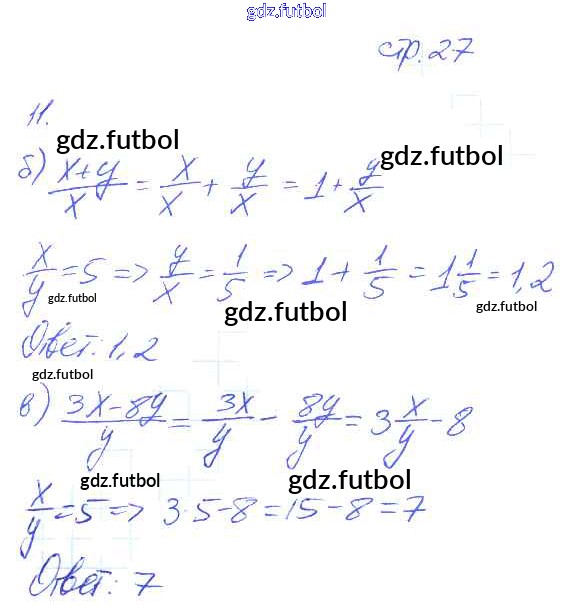 gdz.futbol
стр. 27
11.
gdz.futbol
gdz.futbol
б) (x+y)/x = x/x + y/x = 1 + y/x
x/y = 5 => y/x = 1/5 => 1 + 1/5 = 1 1/5 = 1,2
gdz.futbol
gdz.futbol
gdz.futbol
Ответ: 1,2
gdz.futbol
gdz.futbol
в) (3x-8y)/y = 3x/y - 8y/y = 3 x/y - 8
gdz.futbol
gdz.futbol
x/y = 5 => 3·5-8=15-8=7
Ответ: 7